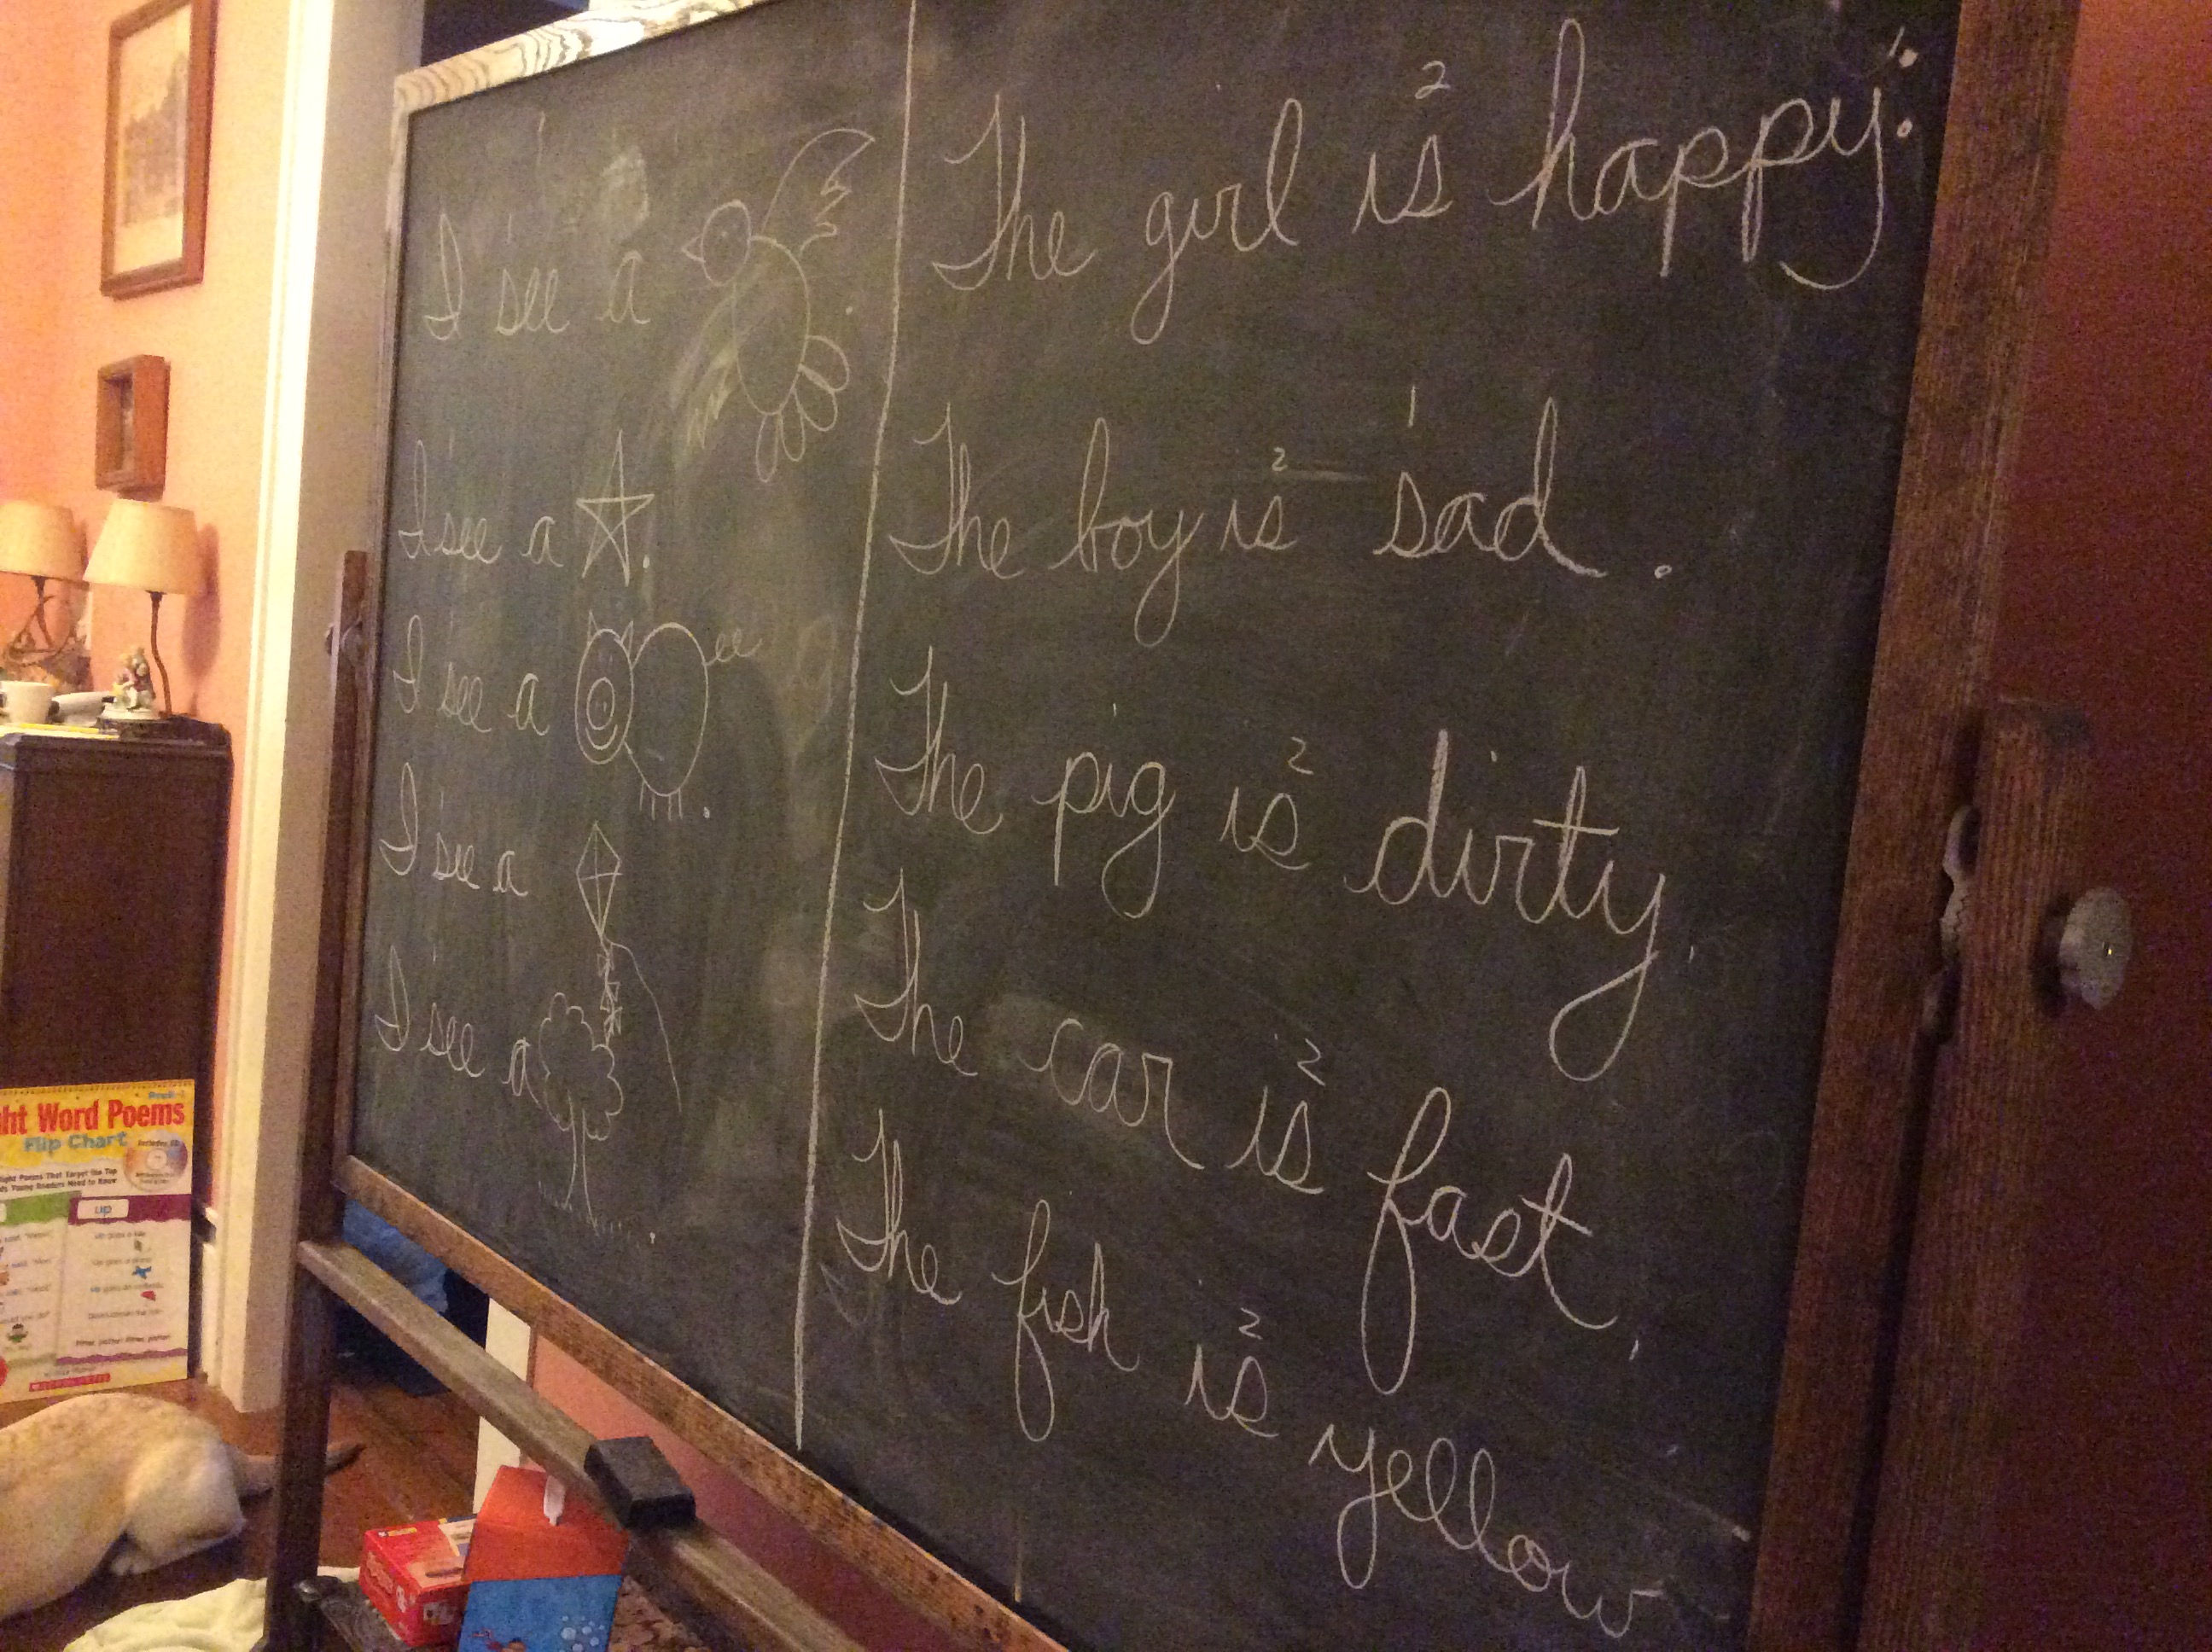 I see a
I see a
I see a
I see a
I see a
The girl is happy.
2
The boy is sad.
2
The pig is dirty.
2
The car is fast.
2
The fish is yellow
2
ght Word Poems
Flip Chart
Includes CD
up